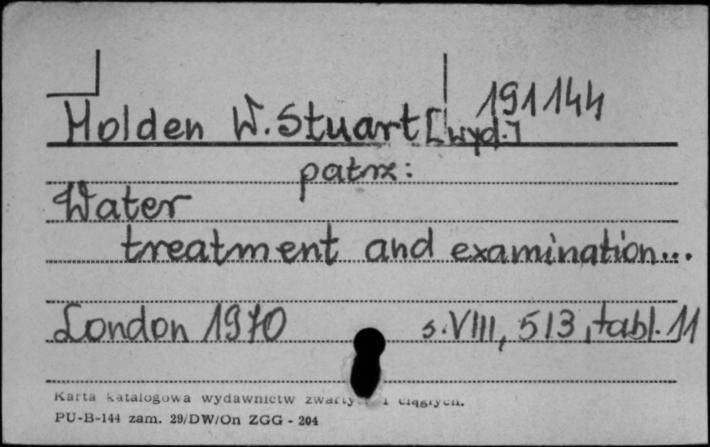 191144
Holden W. Stuart [wyd.]
patrz:
Water
treatment and examination...
London 1970 s. VIII, 513, tabl. 11
Karta katalogowa wydawnictw zwartych i ciągłych.
PU-B-144 zam. 29/DW/On ZGG - 204